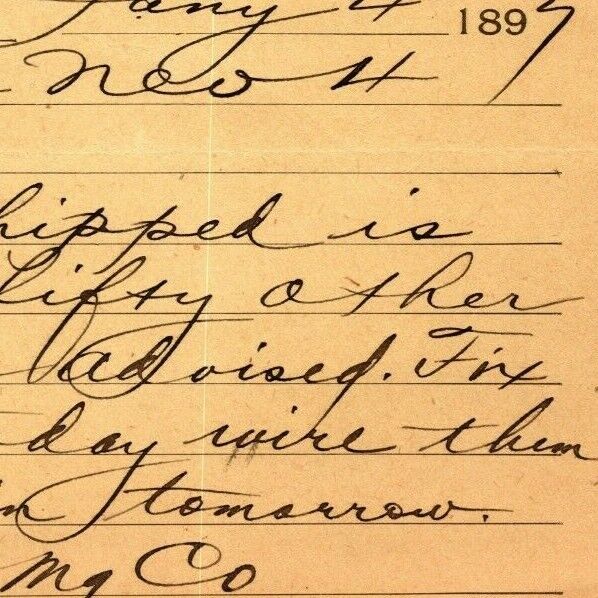 Jany 4 1897
Neo H
hipped is
fifty other
advised. Fix
day wire them
in tomorrow.
Mg Co